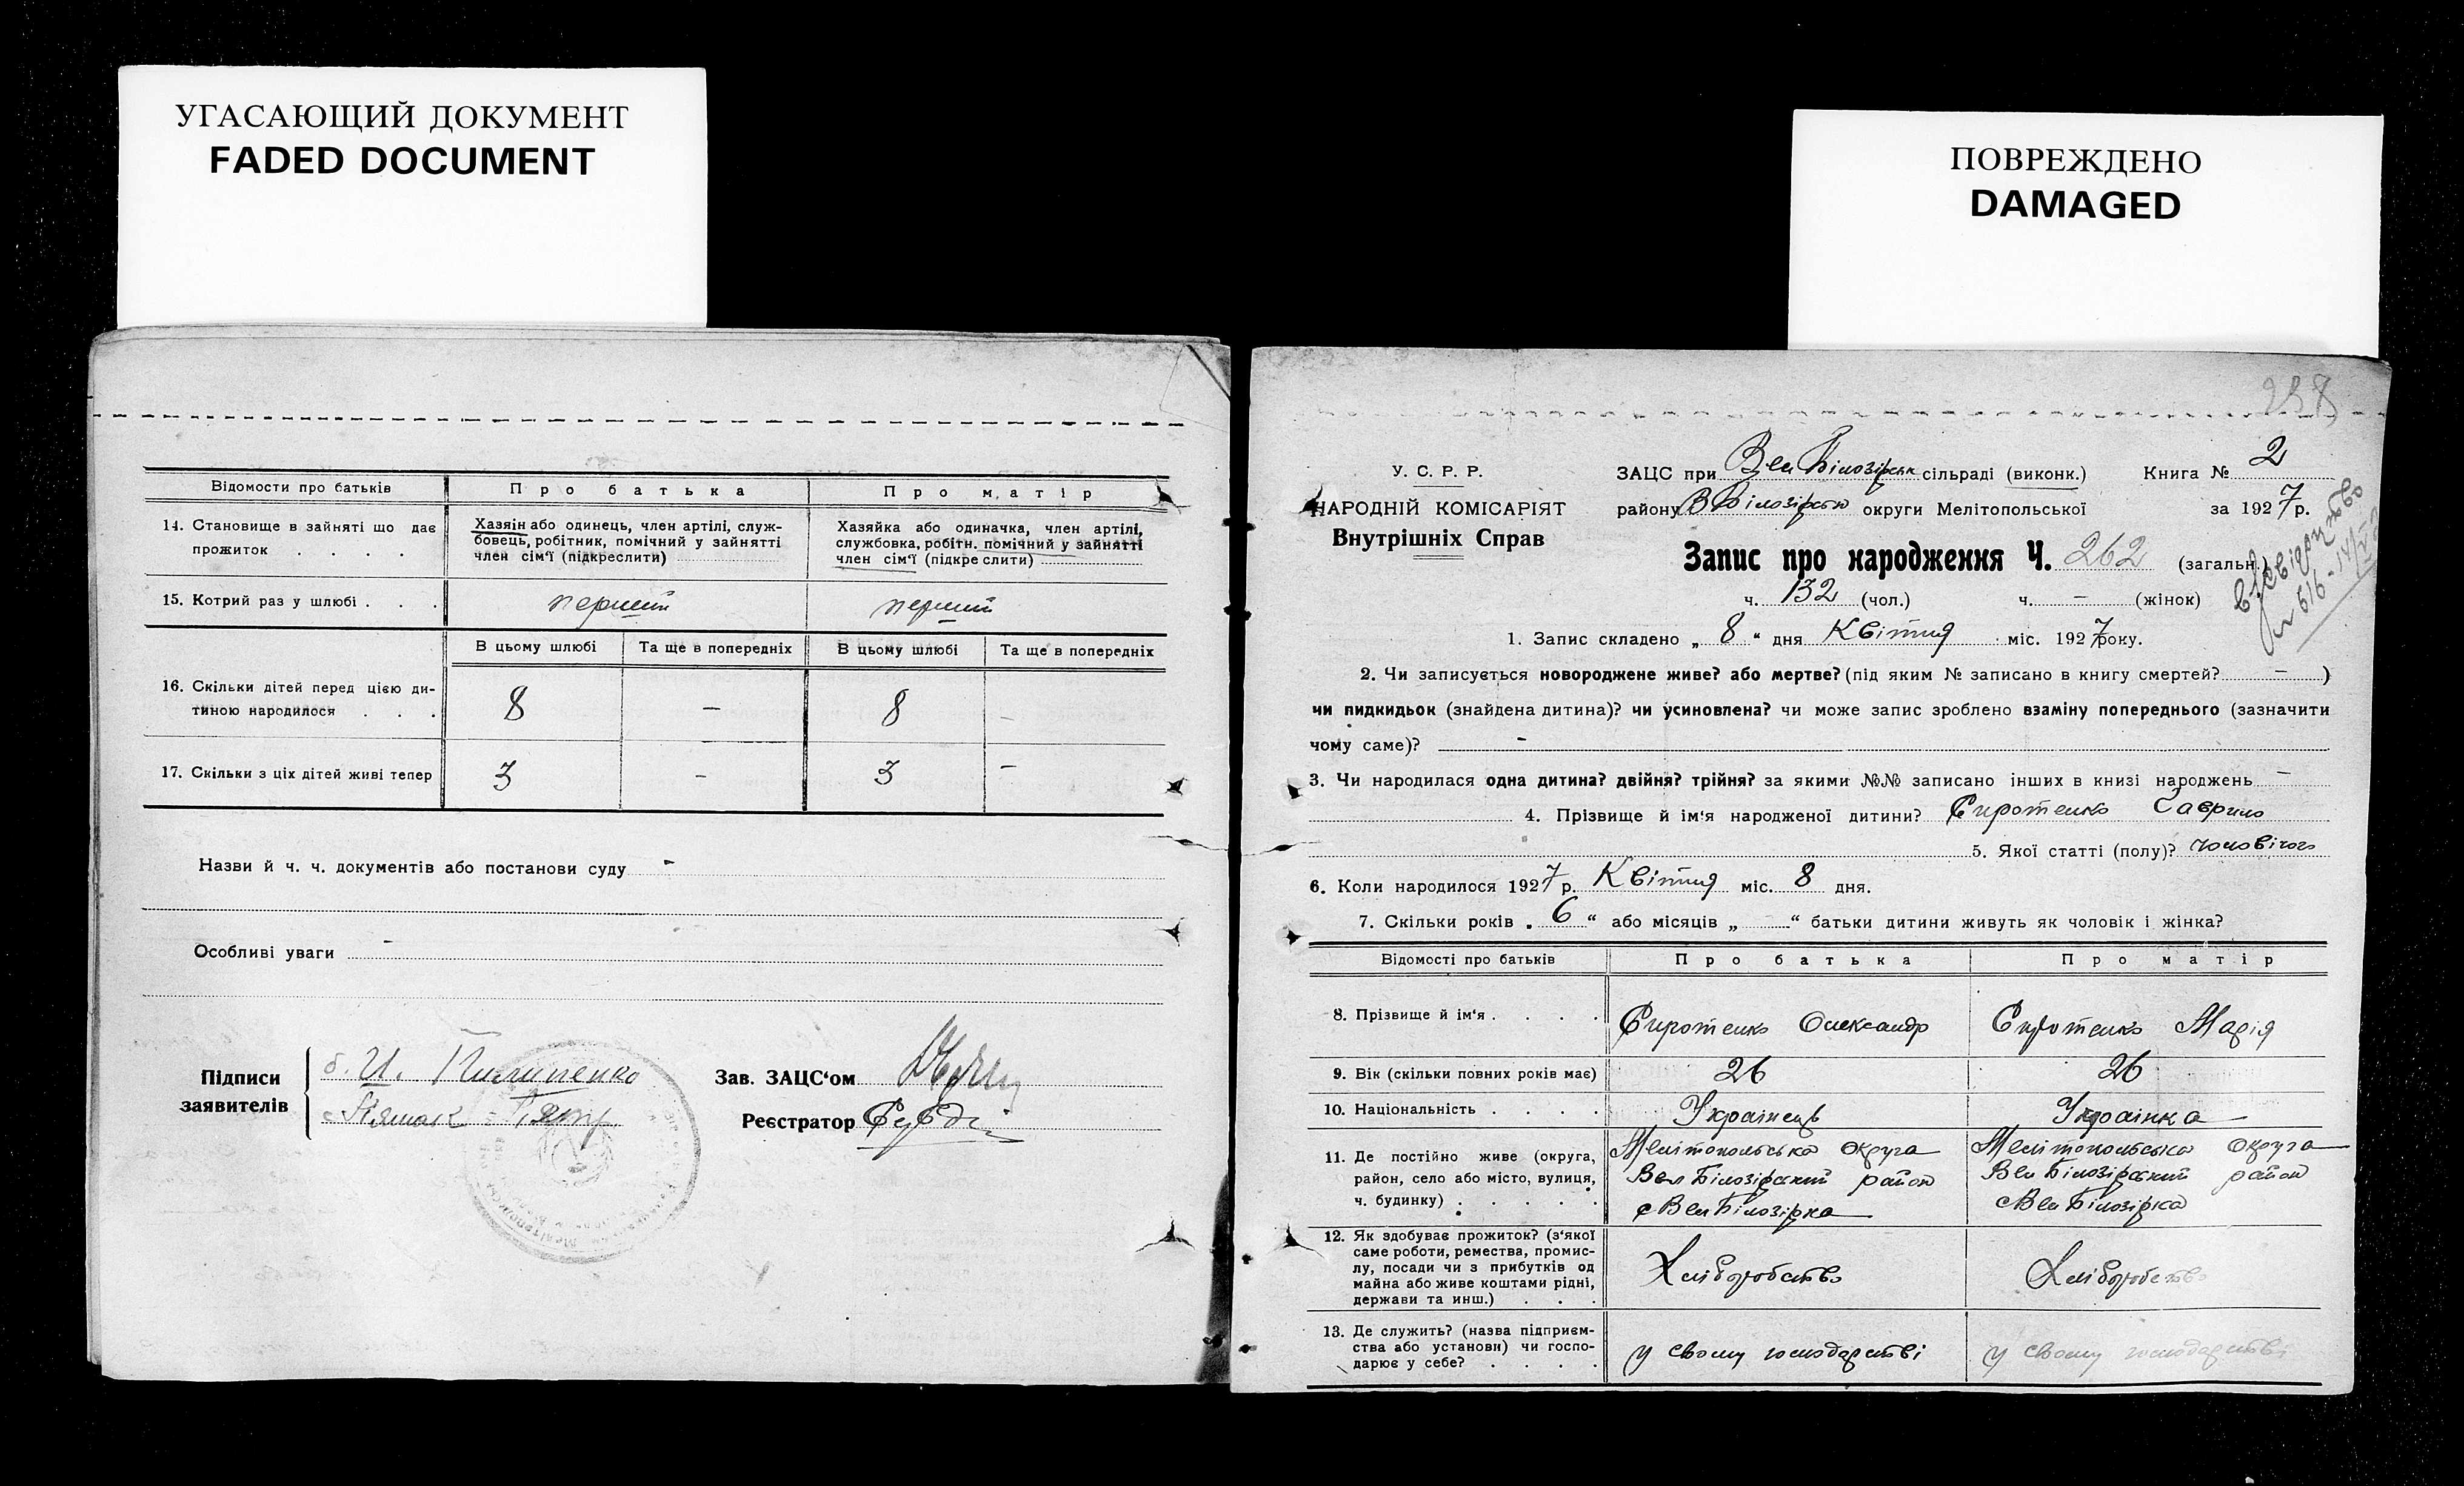 УГАСАЮЩИЙ ДОКУМЕНТ
FADED DOCUMENT
ПОВРЕЖДЕНО
DAMAGED
Відомости про батьків
Про батька
Про матір
14. Становище в зайняті що дає
прожиток . . . .
Хазяїн або одинець, член артілі, служ-
бовець, робітник, помічний у зайнятті
член сім'ї (підкреслити)
Хазяйка або одиначка, член артілі,
службовка, робітн. помічний у зайнятті
член сім'ї (підкреслити)
15. Котрий раз у шлюбі . . .
перший
перший
В цьому шлюбі
Та ще в попередніх
В цьому шлюбі
Та ще в попередніх
16. Скільки дітей перед цією ди-
тиною народилося . . .
8 – 8 –
17. Скільки з ціх дітей живі тепер
3 – 3 –
Назви й ч. ч. документів або постанови суду -
Особливі уваги -
Підписи
заявителів
б. И. Пилипенко
Зав. ЗАЦС'ом
Реєстратор
258
У. С. Р. Р.
НАРОДНІЙ КОМІСАРІЯТ
Внутрішніх Справ
ЗАЦС при Вел Білозірськ сільраді (виконк.) Книга № 2
району В Білозірсько округи Мелітопольської за 1927 р.
Запис про народження Ч. 262 (загальн.)
ч. 132 (чол.) ч. – (жінок)
1. Запис складено „ 8 “ дня Квітня міс. 1927 року.
2. Чи записується новороджене живе? або мертве? (під яким № записано в книгу смертей? – )
чи пидкидьок (знайдена дитина)? чи усиновлена? чи може запис зроблено взаміну попереднього (зазначити
чому саме)? -
3. Чи народилася одна дитина? двійня? трійня? за якими №№ записано інших в книзі народжень –
4. Прізвище й ім'я народженої дитини? Сиротенко Гаврило
5. Якої статті (полу)? чоловічого
6. Коли народилося 1927 р. Квітня міс. 8 дня.
7. Скільки років „ 6 “ або місяців „ “ батьки дитини живуть як чоловік і жінка?
Відомості про батьків
Про батька
Про матір
8. Прізвище й ім'я . . . .
Сиротенко Олександр
Сиротенко Марія
9. Вік (скільки повних років має)
26
26
10. Національність . . . .
Українець
Українка
11. Де постійно живе (округа,
район, село або місто, вулиця,
ч. будинку) . . . . .
Мелітопольська округа
Вел Білозірський район
с Вел Білозірка
Мелітопольська округа
Вел Білозірський район
с Вел Білозірка
12. Як здобуває прожиток? (з'якої
саме роботи, ремества, промис-
лу, посади чи з прибутків од
майна або живе коштами рідні,
держави та инш.) . . .
Хліборобство
Хліборобство
13. Де служить? (назва підприєм-
ства або установи) чи госпо-
дарює у себе? . . . .
у своєму господарстві
у своєму господарстві